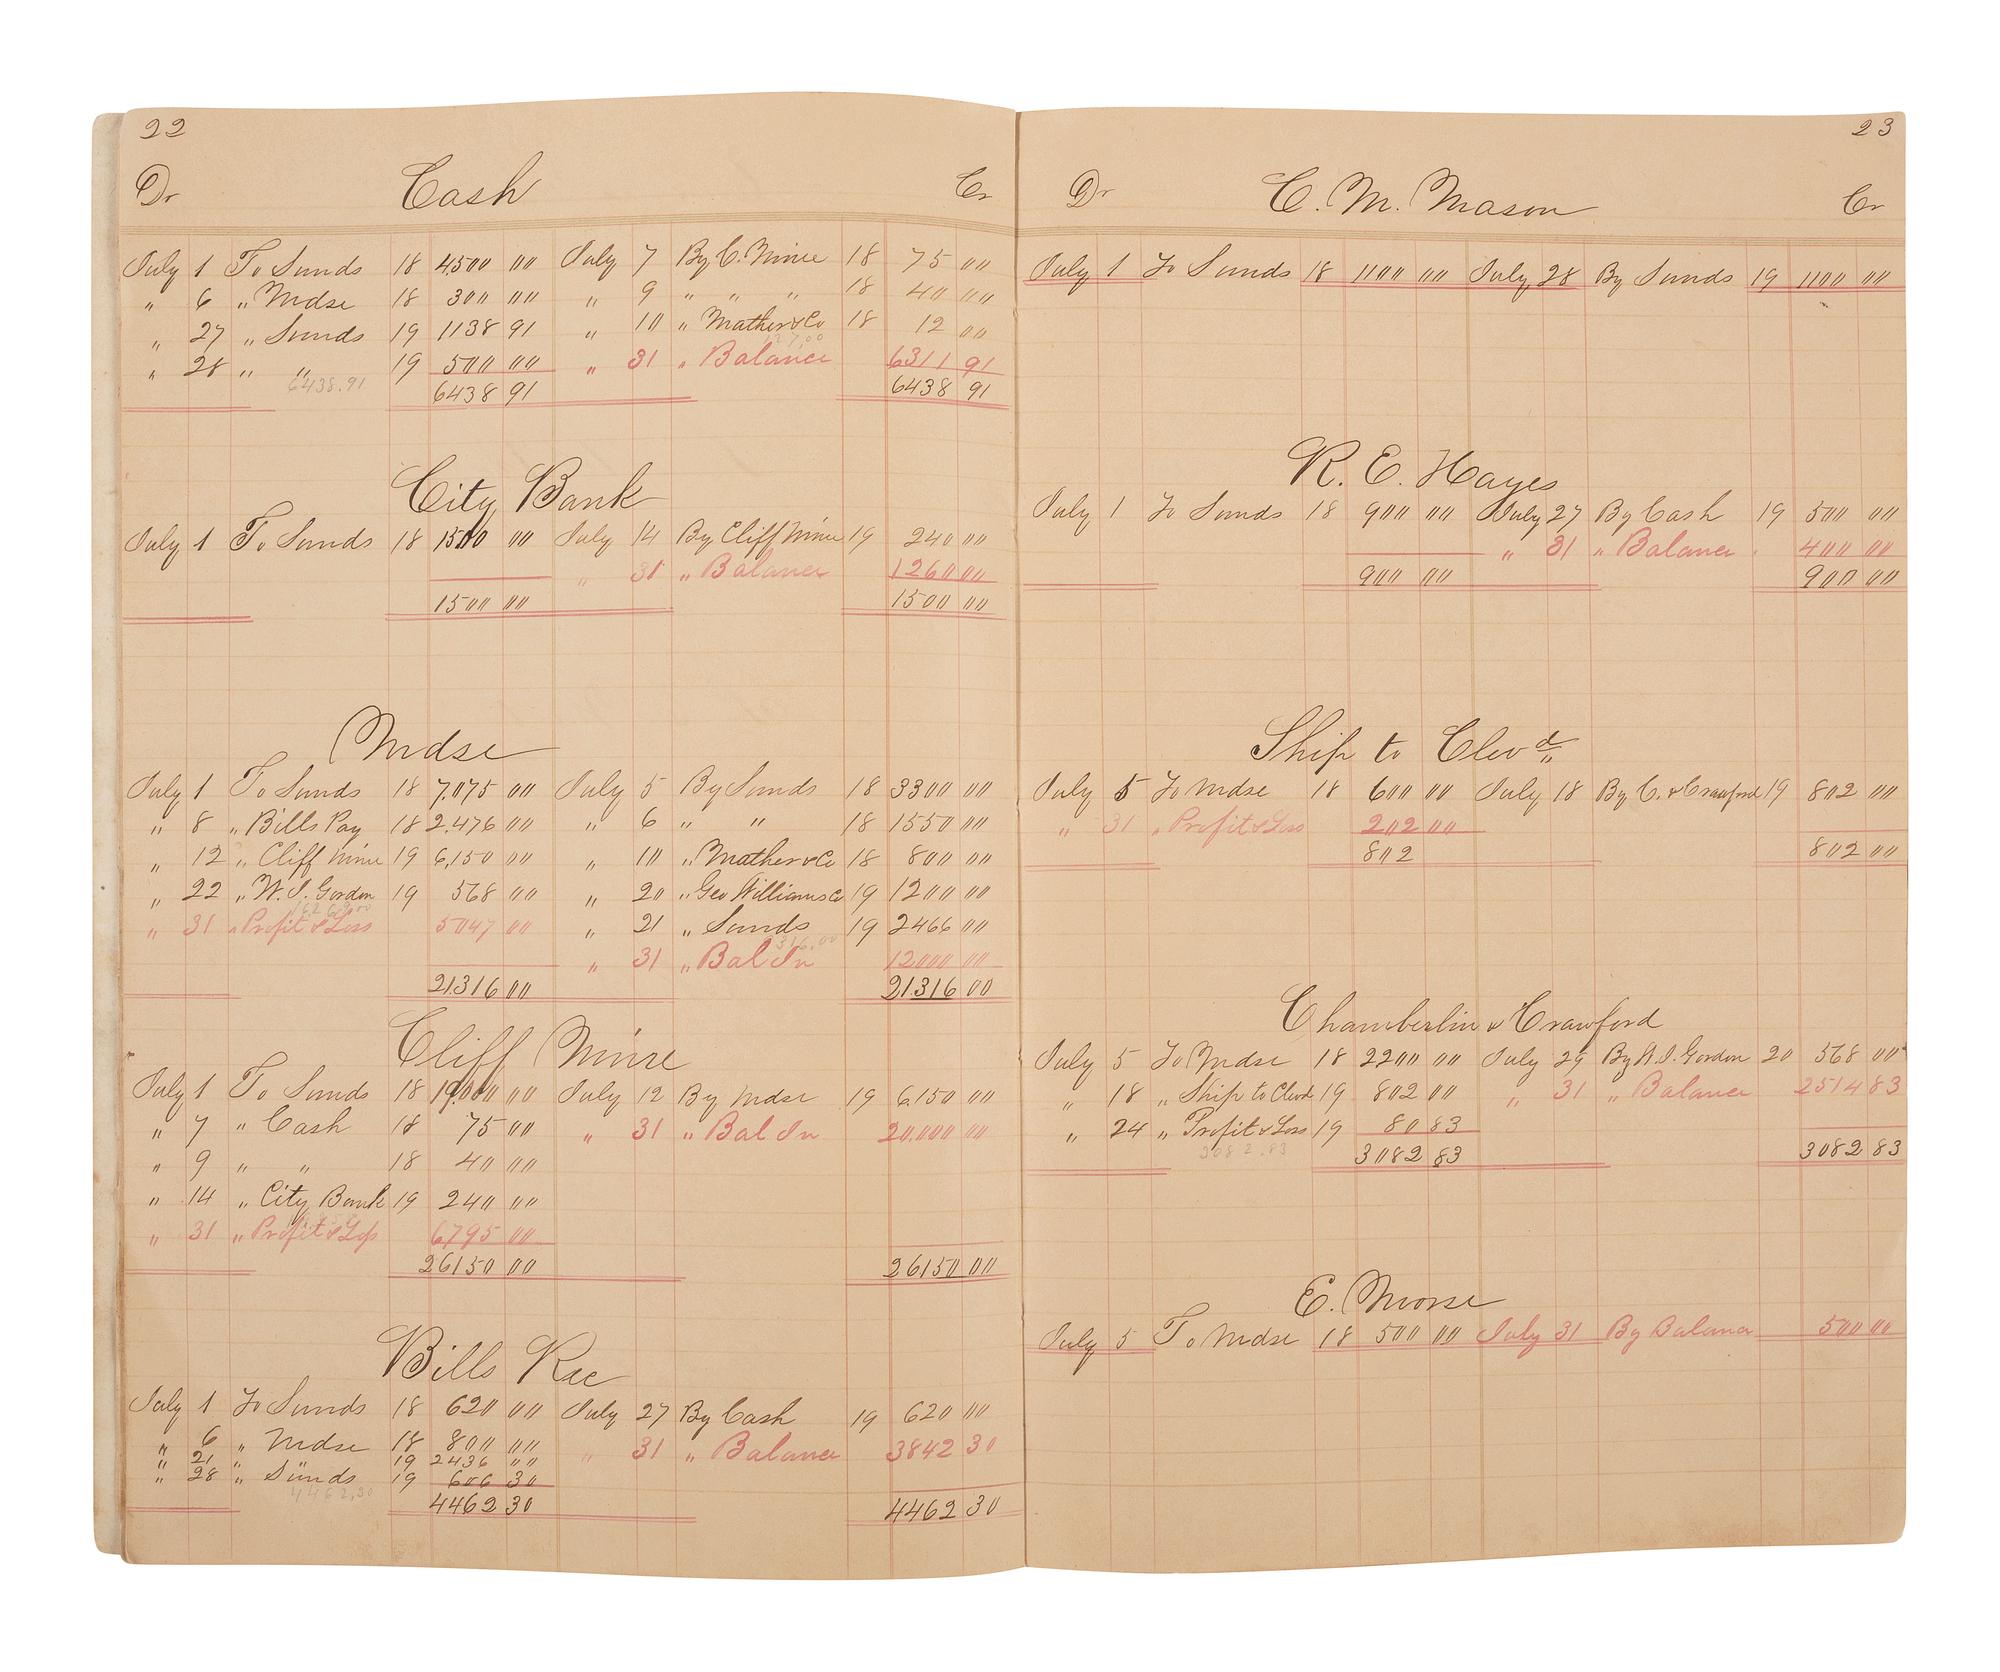 22
Dr Cash Cr
July 1 To Sunds 18 4500 00 July 7 By C. Mine 18 75 00
" 6 " Mdse 18 300 00 " 9 " " " 18 40 00
" 27 " Sunds 19 1138 91 " 10 " Mather & Co 18 12 00
127,00
" 28 " " 19 500 00 " 31 " Balance 6311 91
6438.91
6438 91 6438 91
City Bank
July 1 To Sunds 18 1500 00 July 14 By Cliff Mine 19 240 00
" 31 " Balance 1260 00
1500 00 1500 00
Mdse
July 1 To Sunds 18 7.075 00 July 5 By Sunds 18 3300 00
" 8 " Bills Pay 18 2.476 00 " 6 " " 18 1550 00
" 12 " Cliff Mine 19 6,150 00 " 10 " Mather & Co 18 800 00
" 22 " W. J. Gordon 19 568 00 " 20 " Geo Williams Co 19 1200 00
" 31 " Profit & Loss 5047 00 " 21 " Sunds 19 2466 00
" 31 " Bal In 12000 00
21.316 00 21.316 00
Cliff Mine
July 1 To Sunds 18 19.000 00 July 12 By Mdse 19 6.150 00
" 7 " Cash 18 75 00 " 31 " Bal In 20.000 00
" 9 " " 18 40 00
" 14 " City Bank 19 240 00
" 31 " Profit & Loss 6795 00
26150 00 26150 00
Bills Rec
July 1 To Sunds 18 620 00 July 27 By Cash 19 620 00
" 6 " Mdse 18 800 00 " 31 " Balance 3842 30
" 21 " " 19 2436 00
" 28 " Sunds 19 606 30
4462,30
4462 30 4462 30
23
Dr C. M. Mason Cr
July 1 To Sunds 18 1100 00 July 28 By Sunds 19 1100 00
R. E. Hayes
July 1 To Sunds 18 900 00 July 27 By Cash 19 500 00
" 31 " Balance 400 00
900 00 900 00
Ship to Clevd
July 5 To Mdse 18 600 00 July 18 By C. & Crawford 19 802 00
" 31 " Profit & Loss 202 00
802 802 00
Chamberlin & Crawford
July 5 To Mdse 18 2200 00 July 29 By W. J. Gordon 20 568 00
" 18 " Ship to Clevd 19 802 00 " 31 " Balance 2514 83
" 24 " Profit & Loss 19 80 83
3082.83
3082 83 3082 83
E. Morse
July 5 To Mdse 18 500 00 July 31 By Balance 500 00